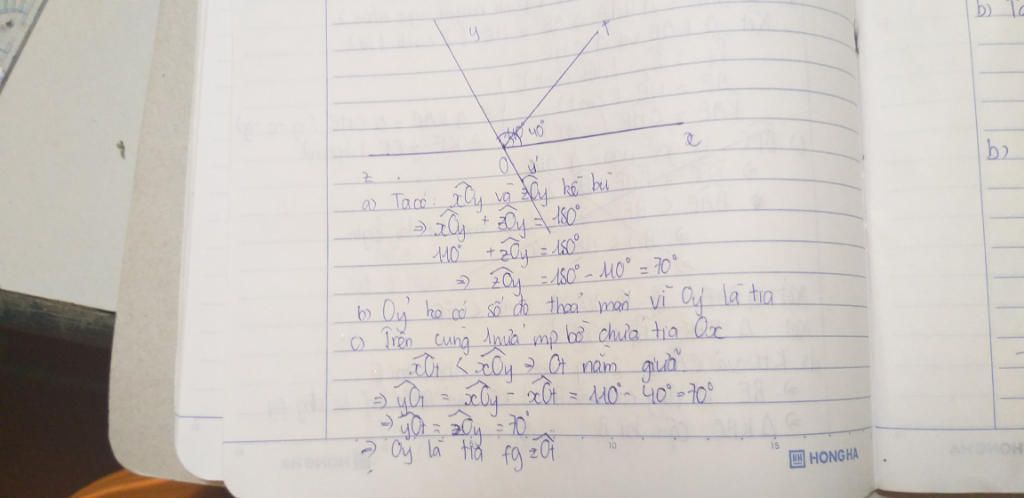 y
t
110° 40°
x
O
y'
z
a) Ta có: xOy và zOy kề bù
⇒ xOy + zOy = 180°
110° + zOy = 180°
⇒ zOy = 180° - 110° = 70°
b) Oy' ko có số đo thoả mãn vì Oy' là tia
c) Trên cùng 1 nửa mp bờ chứa tia Ox
xOt < xOy ⇒ Ot nằm giữa
⇒ yOt = xOy - xOt = 110° - 40° = 70°
⇒ yOt = zOy = 70°
⇒ Oy là tia fg zOt
10
15
HONG HA
b) Ta
b)